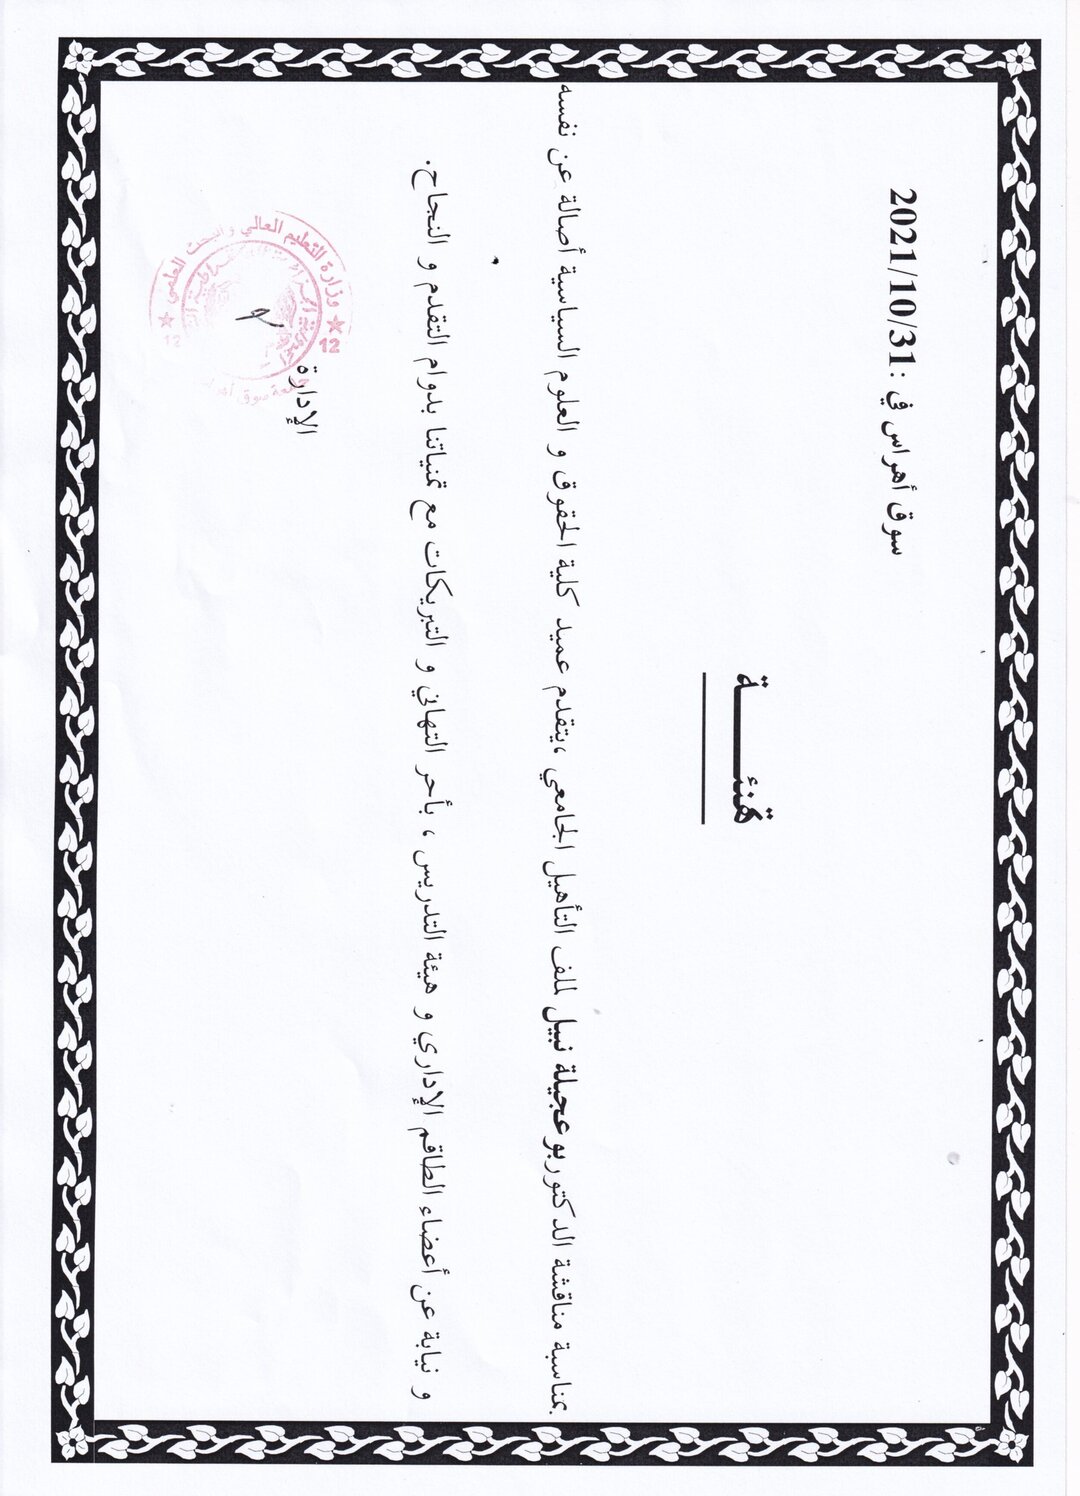 سوق أهراس في :2021/10/31
تهنئـــــة
بمناسبة مناقشة الدكتور بوعجيلة نبيل لملف التأهيل الجامعي ،يتقدم عميد كلية الحقوق و العلوم السياسية أصالة عن نفسه
و نيابة عن أعضاء الطاقم الإداري و هيئة التدريس ، بأحر التهاني و التبريكات مع تمنياتنا بدوام التقدم و النجاح.
الإدارة
وزارة التعليم العالي والبحث العلمي
12
12